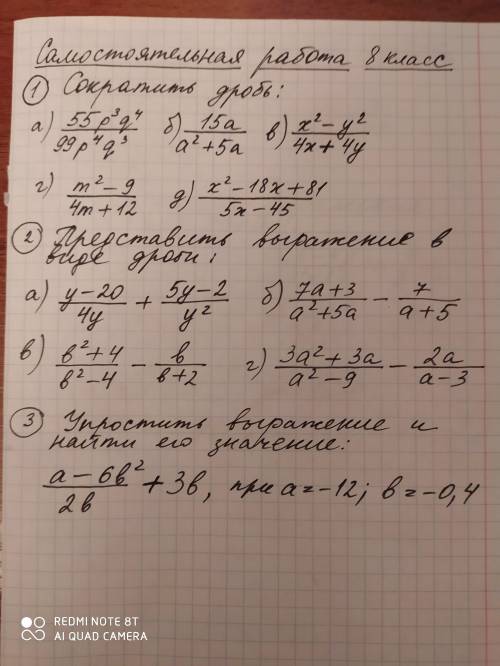 Самостоятельная работа 8 класс
① Сократить дробь:
а) 55p³q⁴/99p⁴q³ б) 15a/a²+5a в) x²-y²/4x+4y
г) m²-9/4m+12 д) x²-18x+81/5x-45
② Представить выражение в
виде дроби:
а) y-20/4y + 5y-2/y² б) 7a+3/a²+5a - 7/a+5
в) b²+4/b²-4 - b/b+2 г) 3a²+3a/a²-9 - 2a/a-3
③ Упростить выражение и
найти его значение:
a-6b²/2b + 3b, при a=-12; b=-0,4
REDMI NOTE 8T
AI QUAD CAMERA